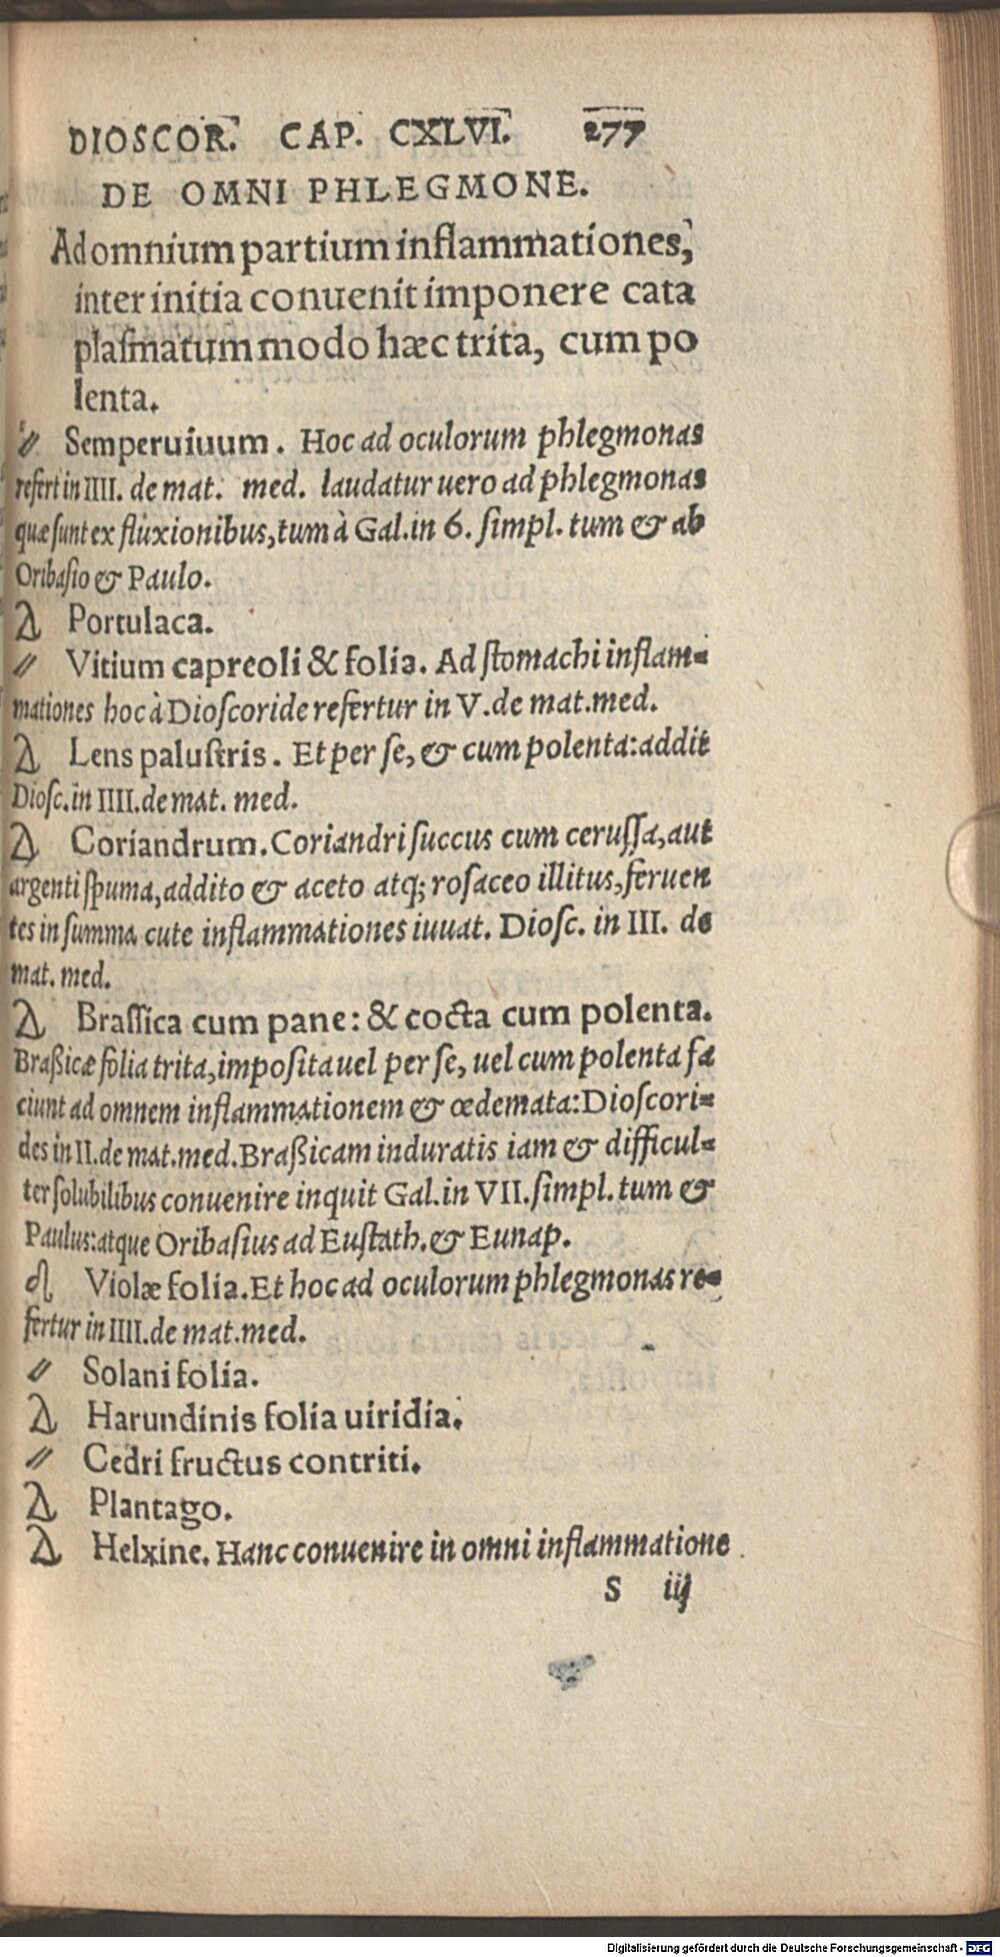 DIOSCOR. CAP. CXLVI. 277
DE OMNI PHLEGMONE.
Ad omnium partium inflammationes,
inter initia conuenit imponere cata
plasmatum modo hæc trita, cum po
lenta.
〃 Semperuiuum. Hoc ad oculorum phlegmonas
refert in IIII. de mat. med. laudatur uero ad phlegmonas
quæ sunt ex fluxionibus, tum à Gal. in 6. simpl. tum & ab
Oribasio & Paulo.
Portulaca.
〃 Vitium capreoli & folia. Ad stomachi inflam-
mationes hoc à Dioscoride refertur in V. de mat. med.
Lens palustris. Et per se, & cum polenta: addit
Diosc. in IIII. de mat. med.
Coriandrum. Coriandri succus cum cerussa, aut
argenti spuma, addito & aceto atq; rosaceo illitus, feruen
tes in summa cute inflammationes iuuat. Diosc. in III. de
mat. med.
Brassica cum pane: & cocta cum polenta.
Braßicæ folia trita, imposita uel per se, uel cum polenta fa
ciunt ad omnem inflammationem & œdemata: Dioscori-
des in II. de mat. med. Braßicam induratis iam & difficul-
ter solubilibus conuenire inquit Gal. in VII. simpl. tum &
Paulus: atque Oribasius ad Eustath. & Eunap.
Violæ folia. Et hoc ad oculorum phlegmonas re-
fertur in IIII. de mat. med.
〃 Solani folia.
Harundinis folia uiridia.
〃 Cedri fructus contriti.
Plantago.
Helxine. Hanc conuenire in omni inflammatione
S iij
Digitalisierung gefördert durch die Deutsche Forschungsgemeinschaft - DFG